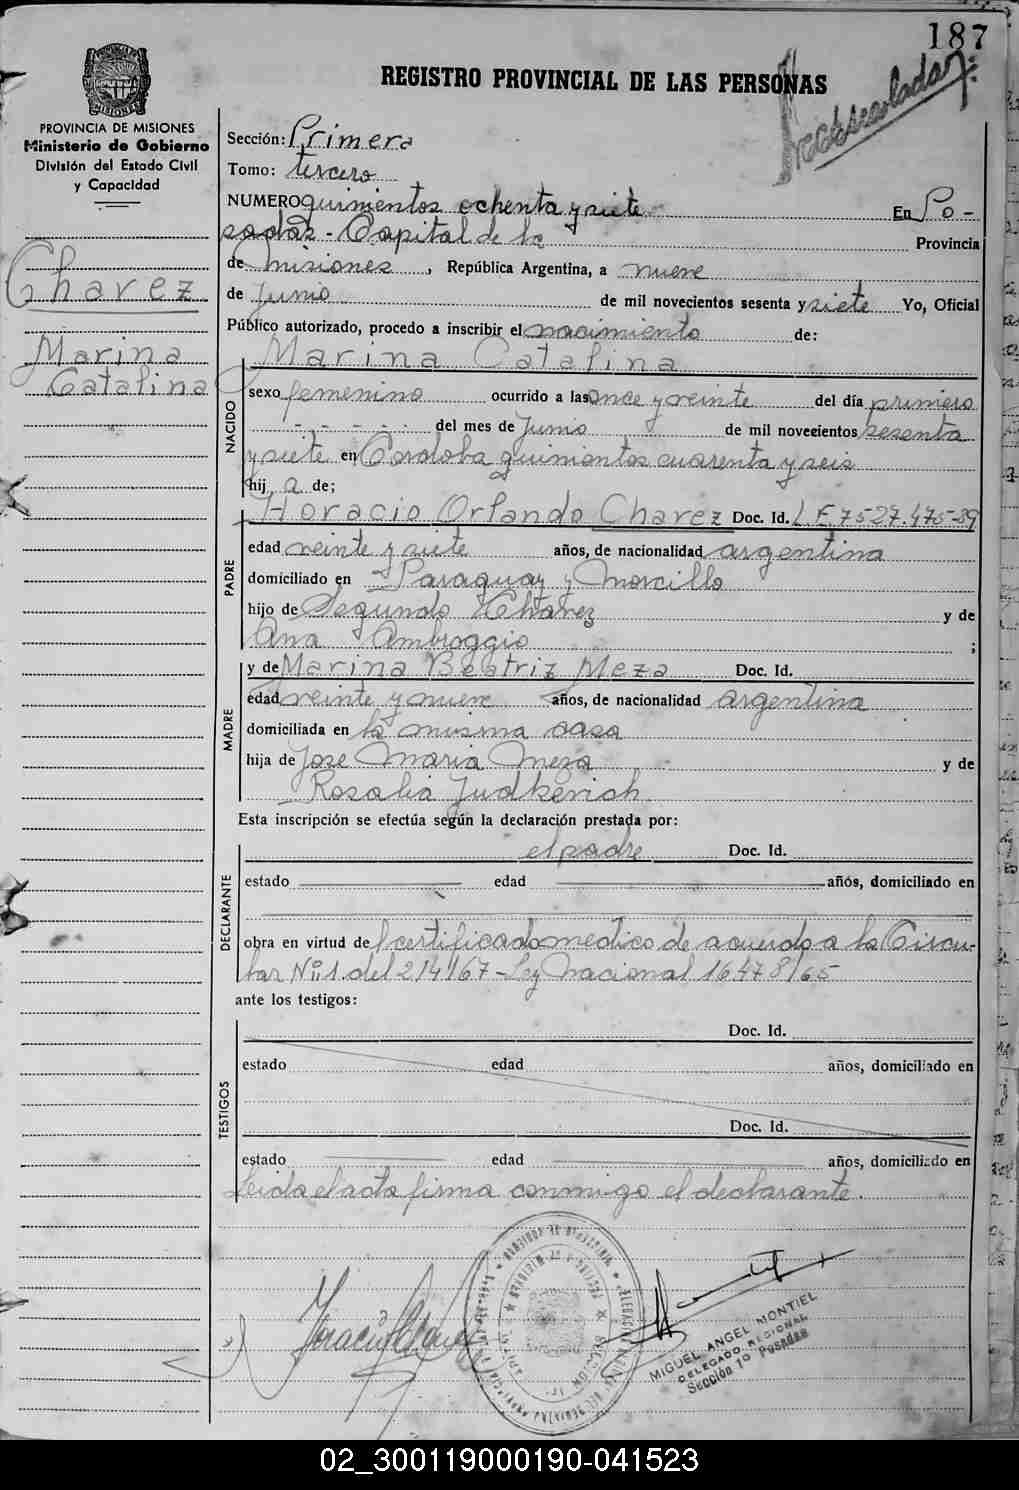 187
REGISTRO PROVINCIAL DE LAS PERSONAS
PROVINCIA DE MISIONES
Ministerio de Gobierno
División del Estado Civil
y Capacidad
Chavez
Marina
Catalina
Sección: Primera
Tomo: tercero
NUMERO quinientos ochenta y siete En Po-
sadas - Capital de la Provincia
de Misiones, República Argentina, a nueve
de Junio de mil novecientos sesenta y siete Yo, Oficial
Público autorizado, procedo a inscribir el nacimiento de:
NACIDO
Marina Catalina
sexo femenino ocurrido a las once y veinte del día primero
- - - - - del mes de Junio de mil novecientos sesenta
y siete en Cordoba quinientos cuarenta y seis
hij a de;
PADRE
Horacio Orlando Chavez Doc. Id. L.E. 7527.475-89
edad veinte y siete años, de nacionalidad argentina
domiciliado en Paraguay y Morcillo
hijo de Segundo Chavez y de
Ana Ambroggio ;
MADRE
y de Marina Beatriz Meza Doc. Id.
edad veinte y nueve años, de nacionalidad argentina
domiciliada en la misma casa
hija de Jose Maria Meza y de
Rosalia Judkevich
Esta inscripción se efectúa según la declaración prestada por:
DECLARANTE
el padre Doc. Id.
estado edad años, domiciliado en
obra en virtud del certificado medico de acuerdo a la Circu-
lar Nº 1 del 214167 - Ley Nacional 16.478/65
ante los testigos:
TESTIGOS
Doc. Id.
estado edad años, domiciliado en
Doc. Id.
estado edad años, domiciliado en
Leida el acta firma conmigo el declarante.
MIGUEL ANGEL MONTIEL
DELEGADO REGIONAL
Sección 1º Posadas
02_300119000190-041523